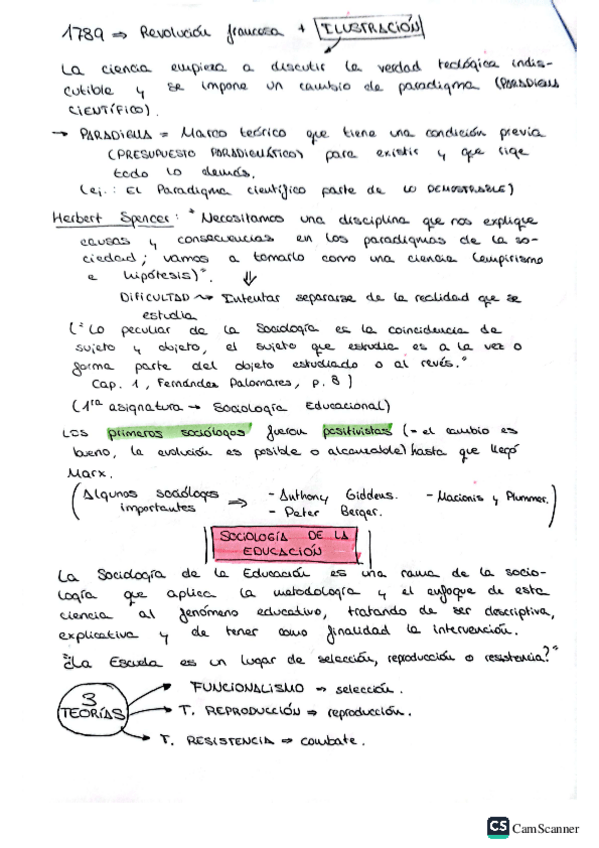 1789 ⇒ Revolución francesa + ILUSTRACIÓN
La ciencia empieza a discutir la verdad teológica indis-
cutible y se impone un cambio de paradigma (PARADIGMA
CIENTÍFICO).
→ PARADIGMA = Marco teórico que tiene una condición previa
(PRESUPUESTO PARADIGMÁTICO) para existir y que rige
todo lo demás.
(ej.: El Paradigma científico parte de lo DEMOSTRABLE)
Herbert Spencer: "Necesitamos una disciplina que nos explique
causas y consecuencias en los paradigmas de la so-
ciedad; vamos a tomarlo como una ciencia (empirismo
e hipótesis)".
DIFICULTAD → Intentar separarse de la realidad que se
estudia
("Lo peculiar de la Sociología es la coincidencia de
sujeto y objeto, el sujeto que estudia es a la vez o
forma parte del objeto estudiado o al revés."
Cap. 1, Fernández Palomares, p. 8)
(1ra asignatura → Sociología Educacional)
Los primeros sociólogos fueron positivistas (- el cambio es
bueno, la evolución es posible o alcanzable) hasta que llegó
Marx.
(Algunos sociólogos ⇒ - Anthony Giddens. - Macionis y Plummer.)
importantes - Peter Berger.
SOCIOLOGÍA DE LA
EDUCACIÓN
La Sociología de la Educación es una rama de la socio-
logía que aplica la metodología y el enfoque de esta
ciencia al fenómeno educativo, tratando de ser descriptiva,
explicativa y de tener como finalidad la intervención.
"¿La Escuela es un lugar de selección, reproducción o resistencia?"
3 TEORÍAS
FUNCIONALISMO ⇒ selección.
T. REPRODUCCIÓN ⇒ reproducción.
T. RESISTENCIA ⇒ combate.
CS CamScanner